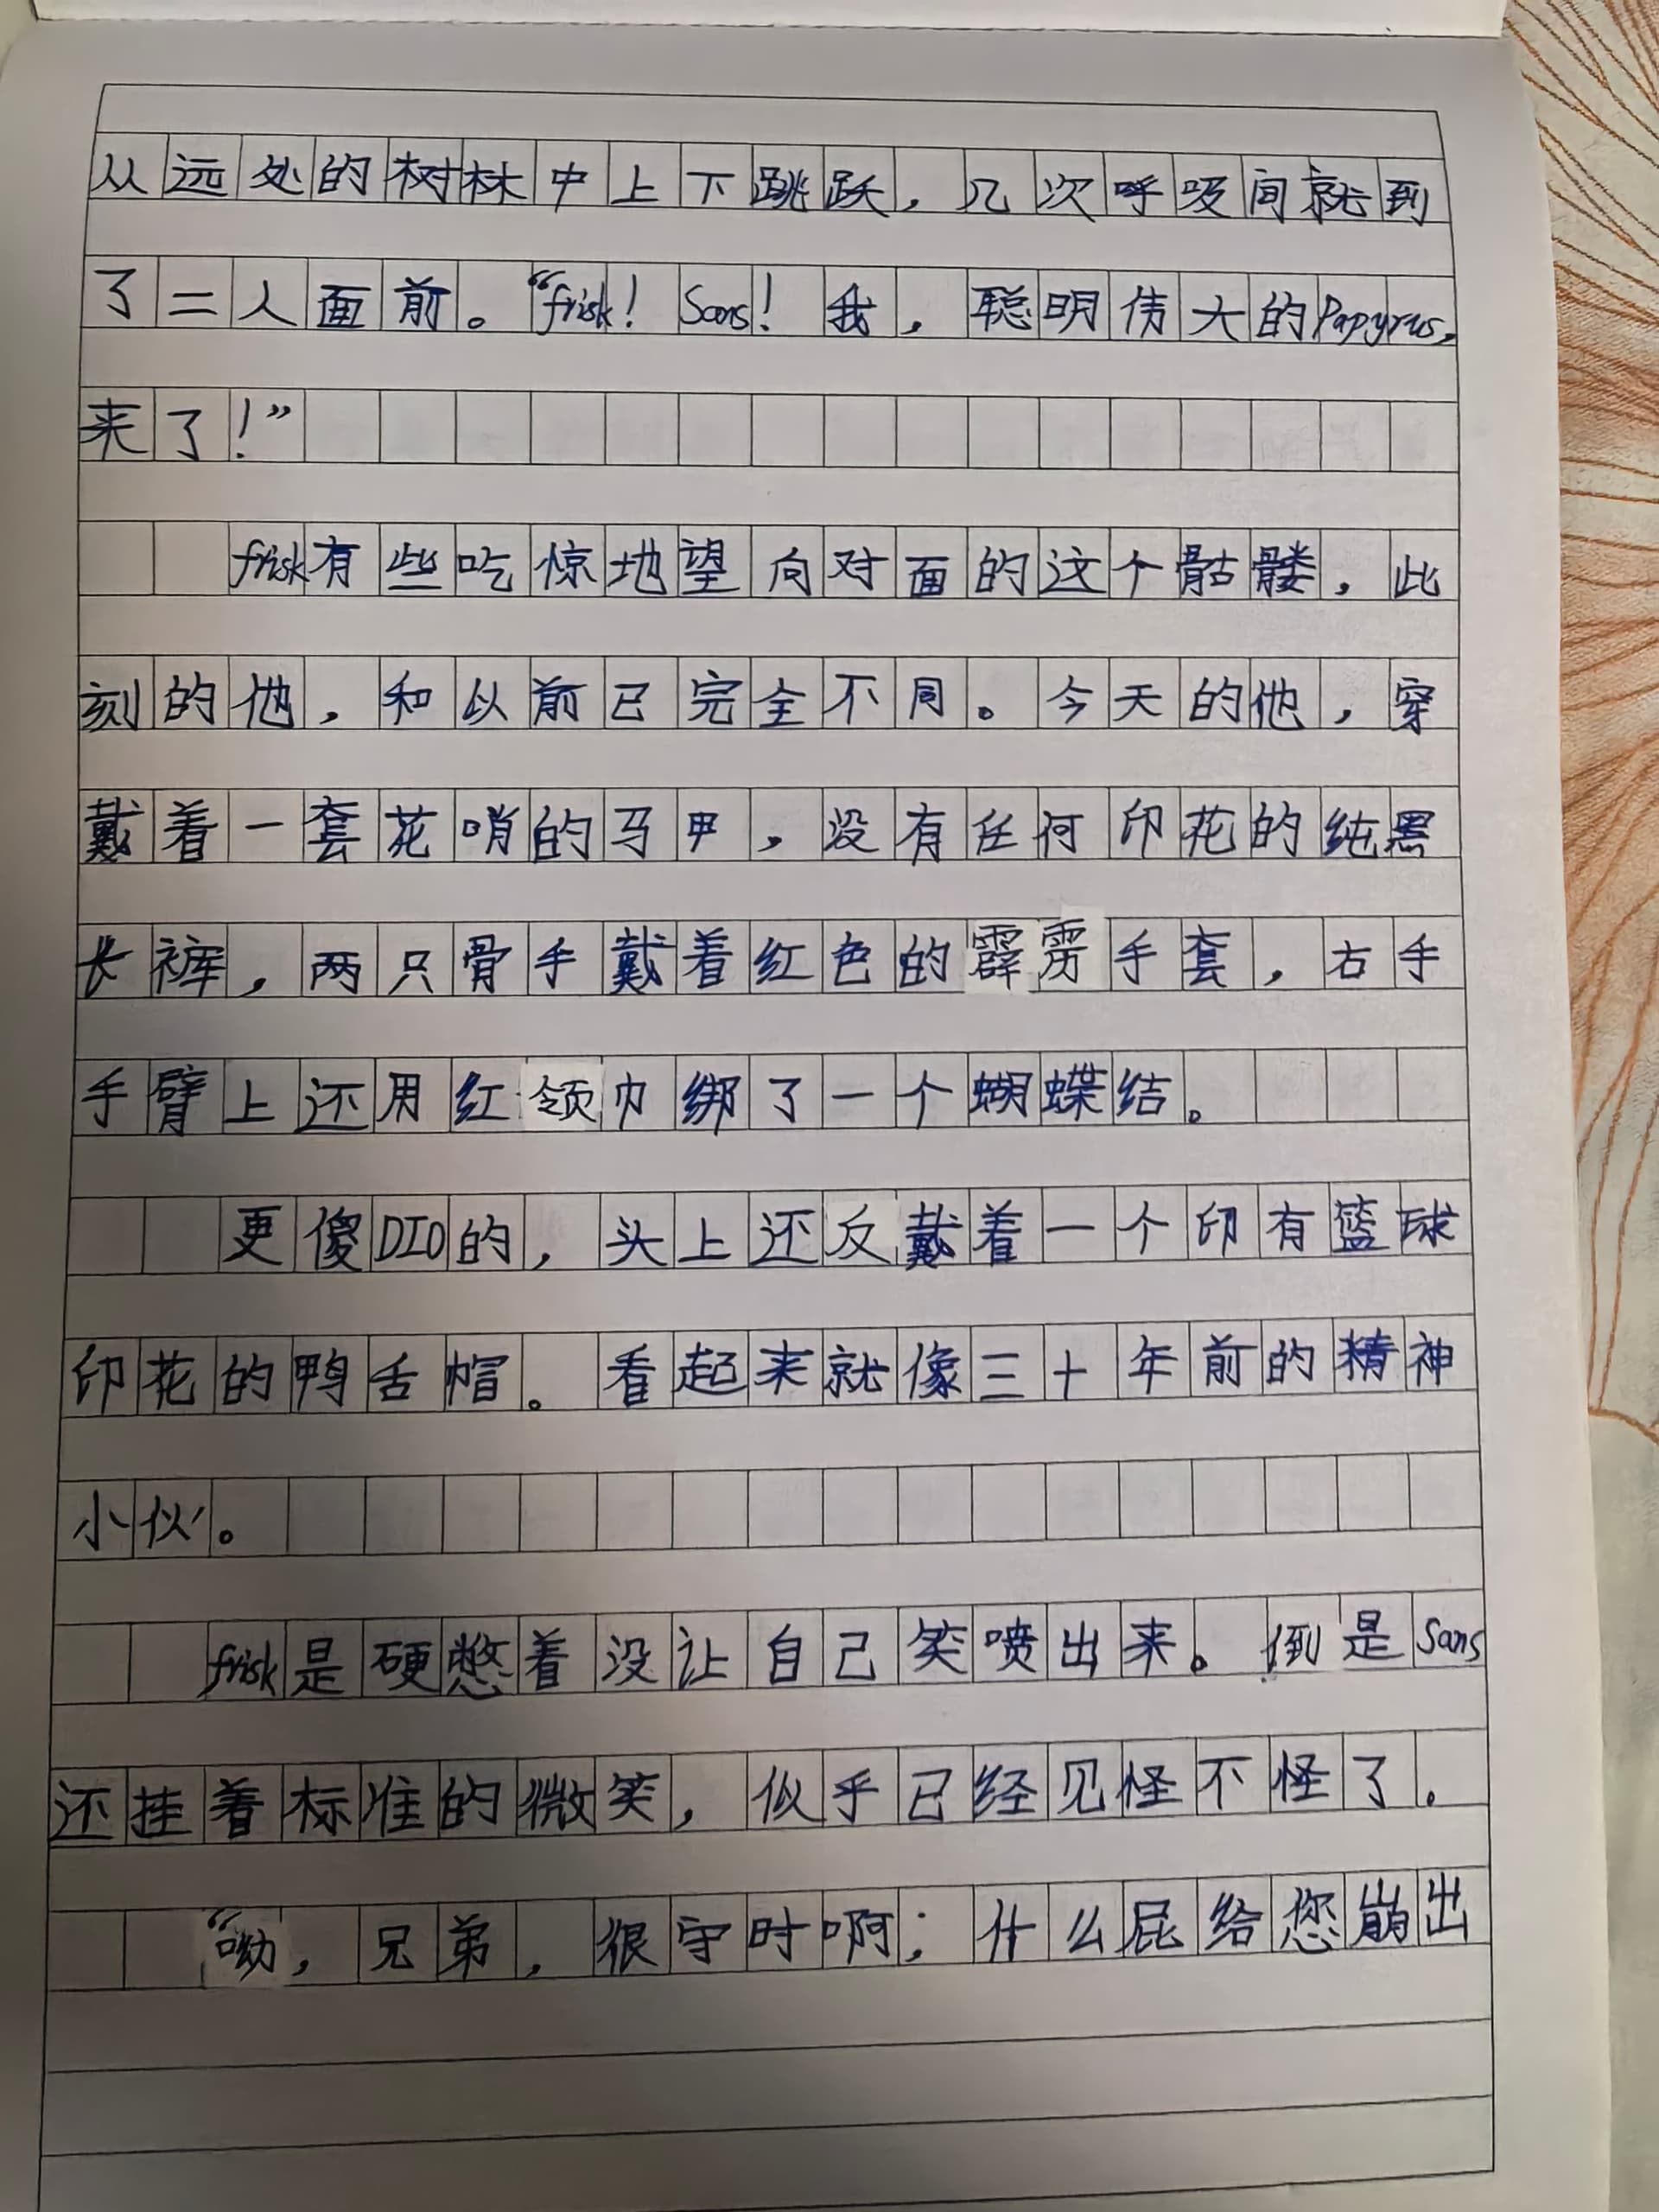 从远处的树林中上下跳跃，几次呼吸间就到
了二人面前。“frisk！Sans！我，聪明伟大的Papyrus，
来了！”
frisk有些吃惊地望向对面的这个骷髅，此
刻的他，和以前已完全不同。今天的他，穿
戴着一套花哨的马甲，没有任何印花的纯黑
长裤，两只骨手戴着红色的霹雳手套，右手
手臂上还用红领巾绑了一个蝴蝶结。
更傻DIO的，头上还反戴着一个印有篮球
印花的鸭舌帽。看起来就像三十年前的精神
小伙。
frisk是硬憋着没让自己笑喷出来。倒是Sans
还挂着标准的微笑，似乎已经见怪不怪了。
“呦，兄弟，很守时啊；什么屁给您崩出